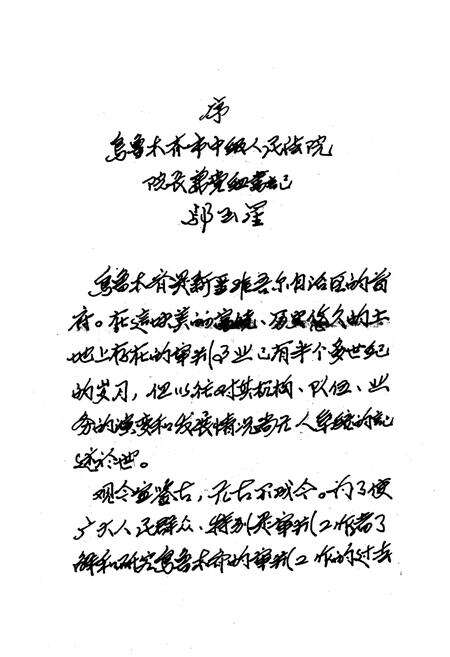 序
乌鲁木齐市中级人民法院
院长兼党组书记
邬玉泽
乌鲁木齐是新疆维吾尔自治区的首
府。在这块美的富饶、历史悠久的土
地上存在的审判事业已有半个多世纪
的岁月，但以往对其机构、队伍、业
务的演变和发展情况尚无人系统的记
述于世。
观今宜鉴古，无古不成今。为了使
广大人民群众、特别是审判工作者了
解和研究乌鲁木齐市的审判工作的过去